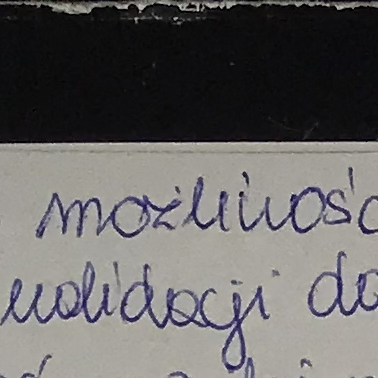 możliwość
walidacji da